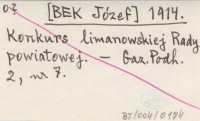 [BEK Józef] 1914.
Konkurs limanowskiej Rady
powiatowej. – Gaz. Podh.
2, nr 7.
BJ/004/0194